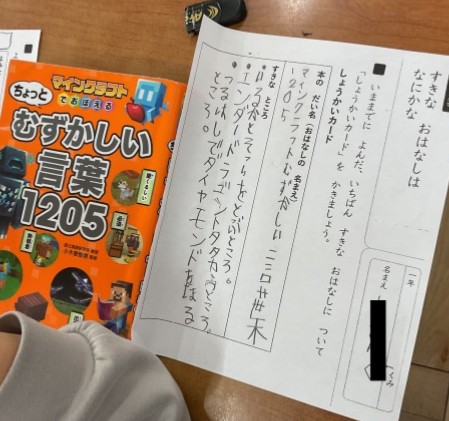 マインクラフト
でおぼえる
ちょっと
むずかしい
言葉
1205
すきな おはなしは
なにかな
一年
名まえ
くみ
いままでに よんだ、いちばん すきな おはなしに ついて
「しょうかいカード」を かきましょう。
しょうかいカード
本の だい名(おはなしの 名まえ)
マインクラフトむずかしい
1205
すきな ところ
・エンダードラゴントタタカウところ。
・つるはしでダイヤモンドをほる
ところ。